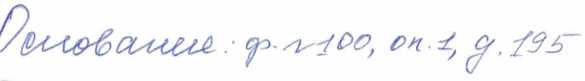 Основание: ф. №100, оп. 1, д. 195